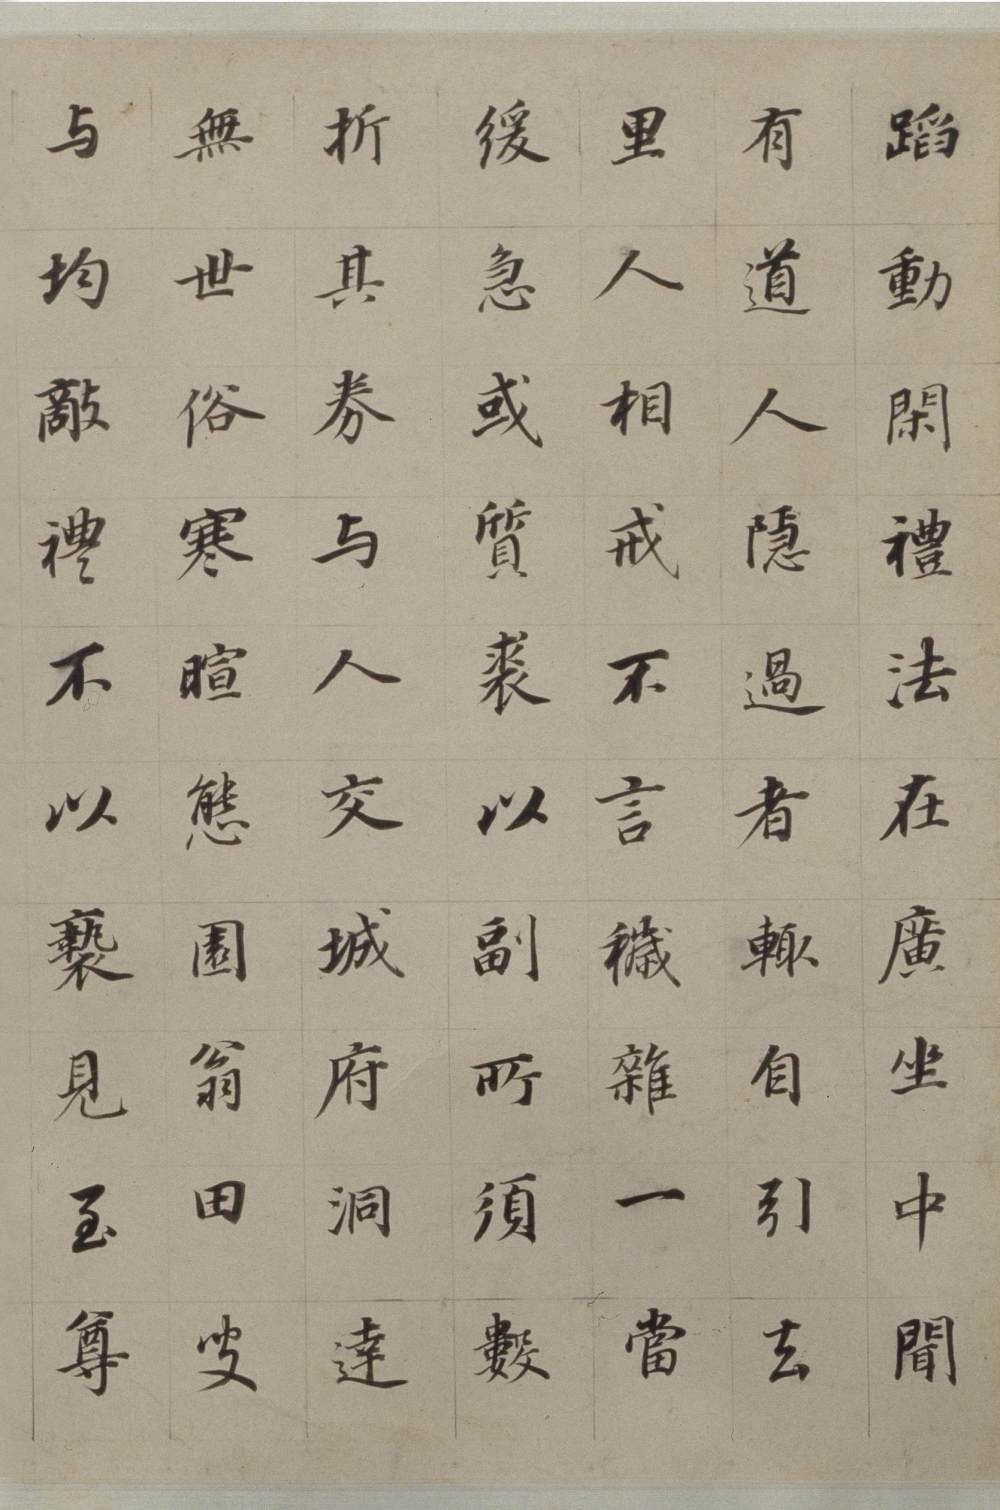 蹈動閑禮法在廣坐中聞
有道人隱過者輙自引去
里人相戒不言穢雜一當
緩急或質裘以副所須數
折其券与人交城府洞達
無世俗寒暄態園翁田叟
与均敵禮不以褻見至尊